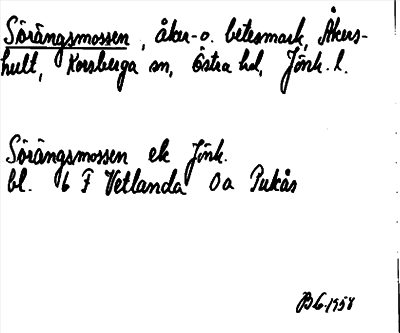 Sörängsmossen, åker- o. betesmark, Åkers-
hult, Korsberga sn, Östra hd, Jönk. l.
Sörängsmossen ek Jönk.
bl. 6 F Vetlanda 0a Pukås
1958